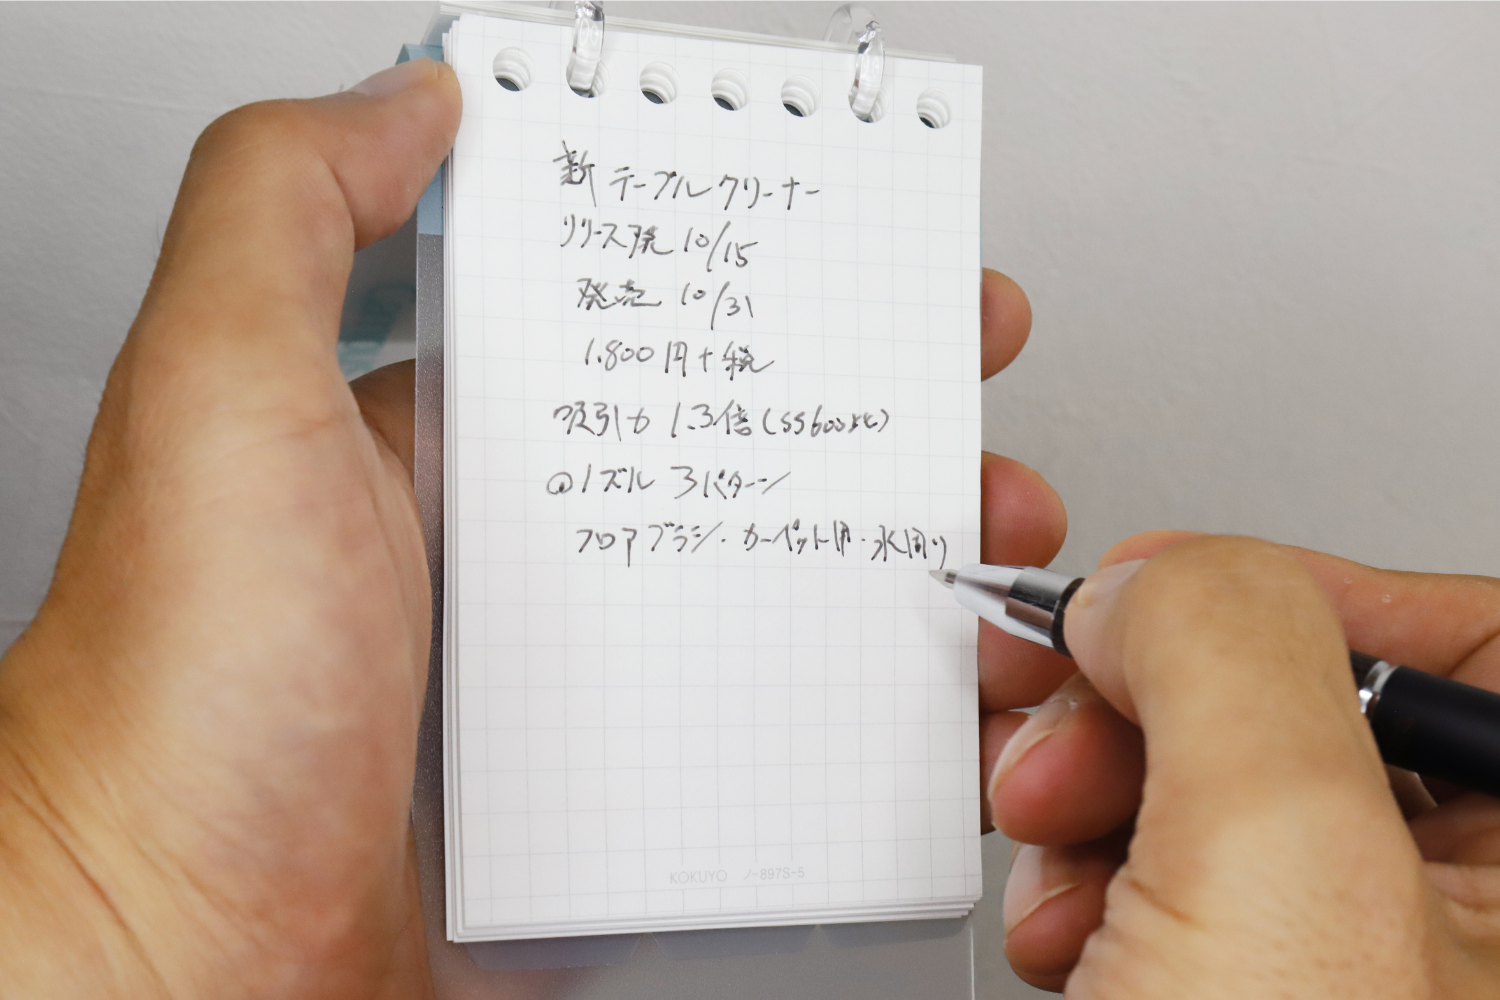 新テーブルクリーナー
リリース発 10/15
発売 10/31
1.800円+税
吸引力 1.3倍(SS600比)
@ノズル 3パターン
フロアブラシ・カーペット用・水周り
KOKUYO ノ-897S-5